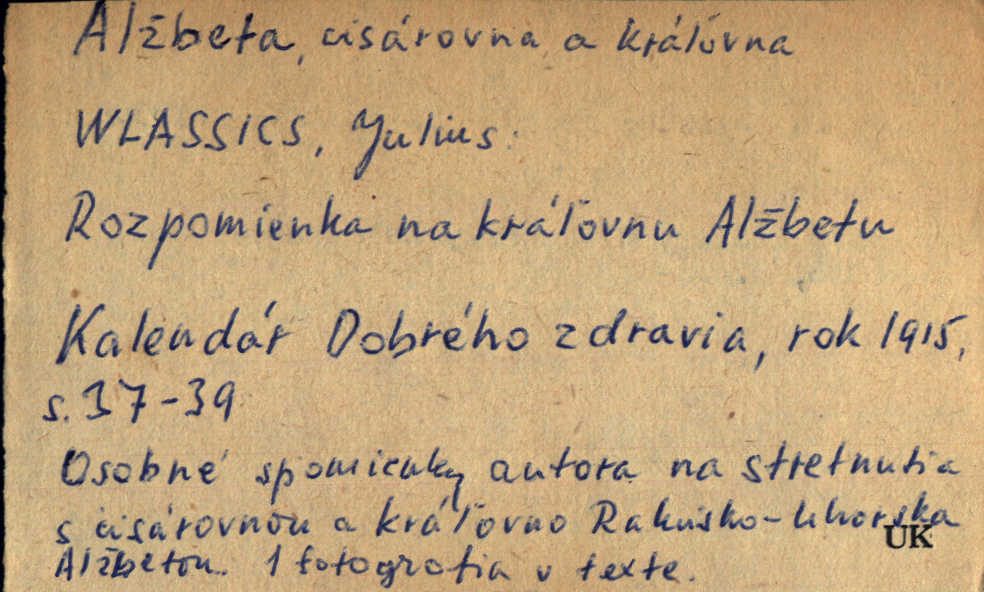 Alžbeta, cisárovna a kráľovna
WLASSICS, Julius:
Rozpomienka na kráľovnu Alžbetu
Kalendár Dobrého zdravia, rok 1915,
s. 37-39
Osobné spomienky autora na stretnutia
s cisárovnou a kráľovno Rakúsko-Uhorska
Alžbetou. 1 fotografia v texte.
ÚK